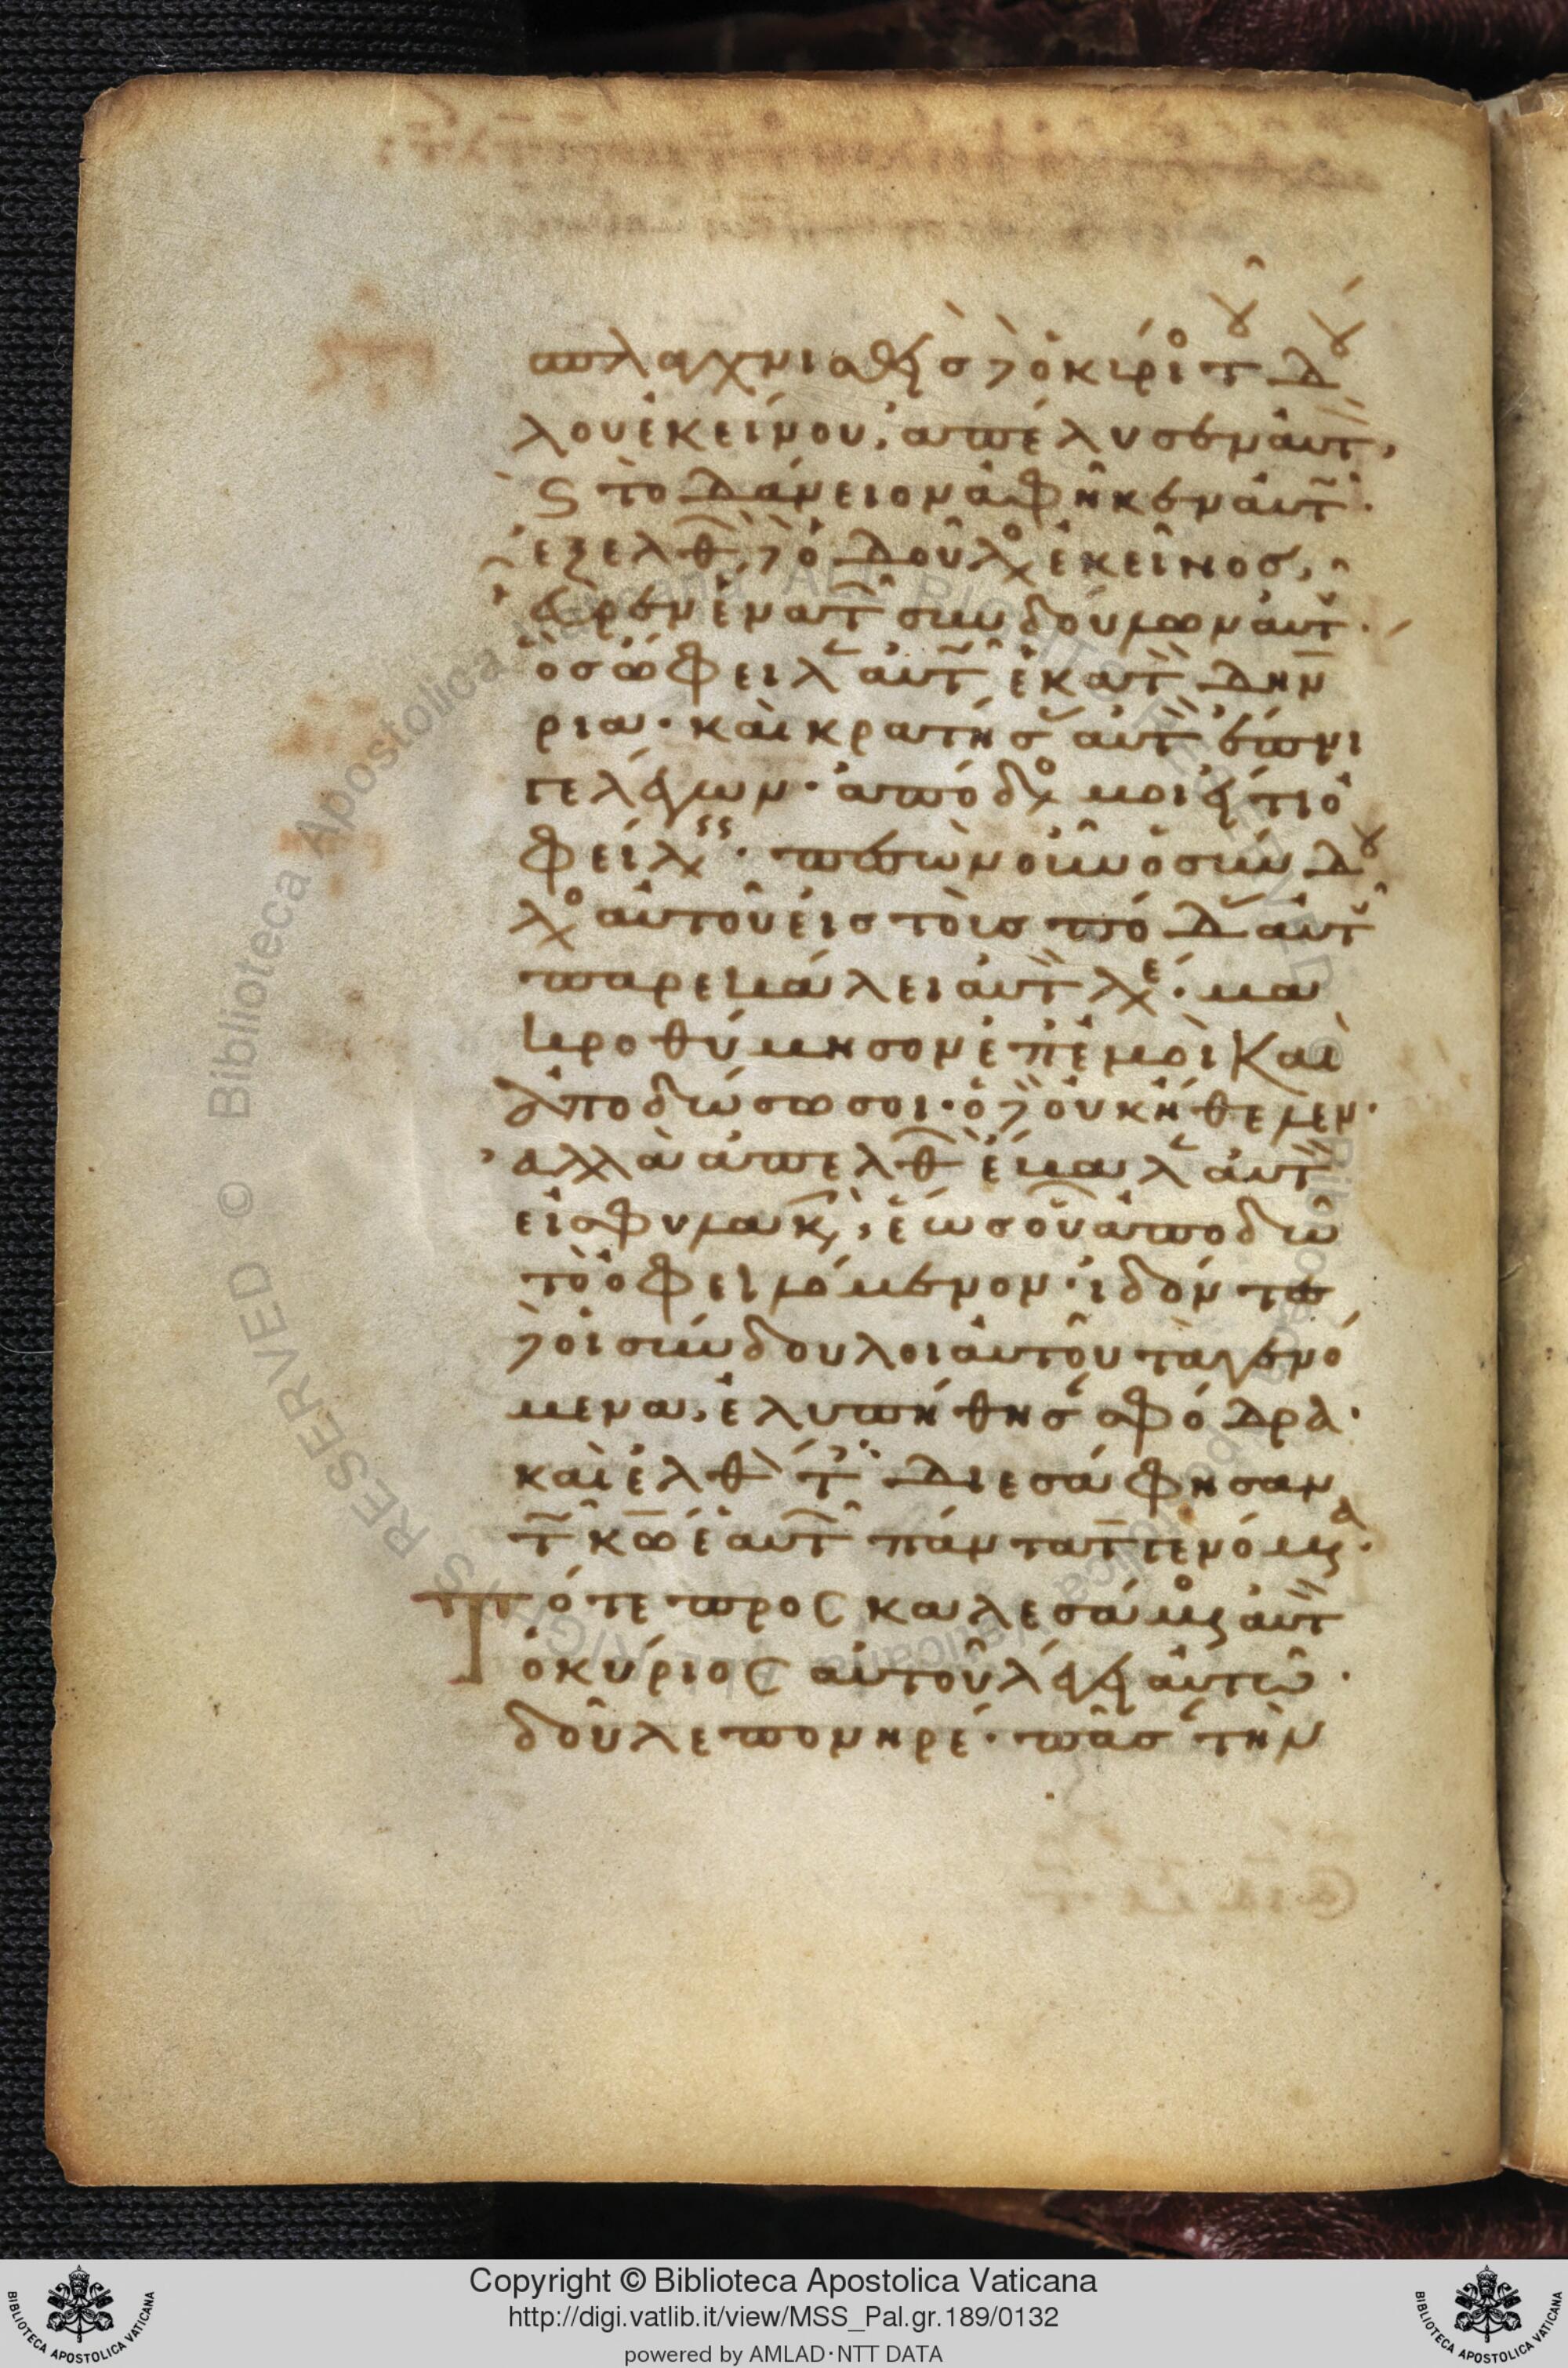 σπλαγχνισθεὶς δὲ ὁ κύριος τοῦ δού
λου ἐκείνου, ἀπέλυσεν αὐτὸν,
καὶ τὸ δάνειον ἀφῆκεν αὐτῷ.
ἐξελθὼν δὲ ὁ δοῦλος ἐκεῖνος,
εὗρεν ἕνα τῶν συνδούλων αὐτοῦ.
ὃς ὤφειλεν αὐτῷ ἑκατὸν δηνά
ρια. καὶ κρατήσας αὐτὸν ἔπνι
γε λέγων. ἀπόδος μοι εἴ τι ὀ
φείλεις. πεσὼν οὖν ὁ σύνδου
λος αὐτοῦ εἰς τοὺς πόδας αὐτοῦ
παρεκάλει αὐτὸν λέγων. μα
κροθύμησον ἐπ' ἐμοὶ καὶ
ἀποδώσω σοι. ὁ δὲ οὐκ ἤθελεν.
ἀλλὰ ἀπελθὼν ἔβαλεν αὐτὸν
εἰς φυλακὴν, ἕως οὗ ἀποδῶ
τὸ ὀφειλόμενον. ἰδόντες
δὲ οἱ σύνδουλοι αὐτοῦ τὰ γενό
μενα, ἐλυπήθησαν σφόδρα.
καὶ ἐλθόντες διεσάφησαν
τῷ κω ἑαυτῶν πάντα τὰ γενόμενα.
Τότε προσκαλεσάμενος αὐτὸν
ὁ κύριος αὐτοῦ λέγει αὐτῶ.
δοῦλε πονηρέ. πᾶσαν τὴν
Copyright © Biblioteca Apostolica Vaticana
http://digi.vatlib.it/view/MSS_Pal.gr.189/0132
powered by AMLAD·NTT DATA